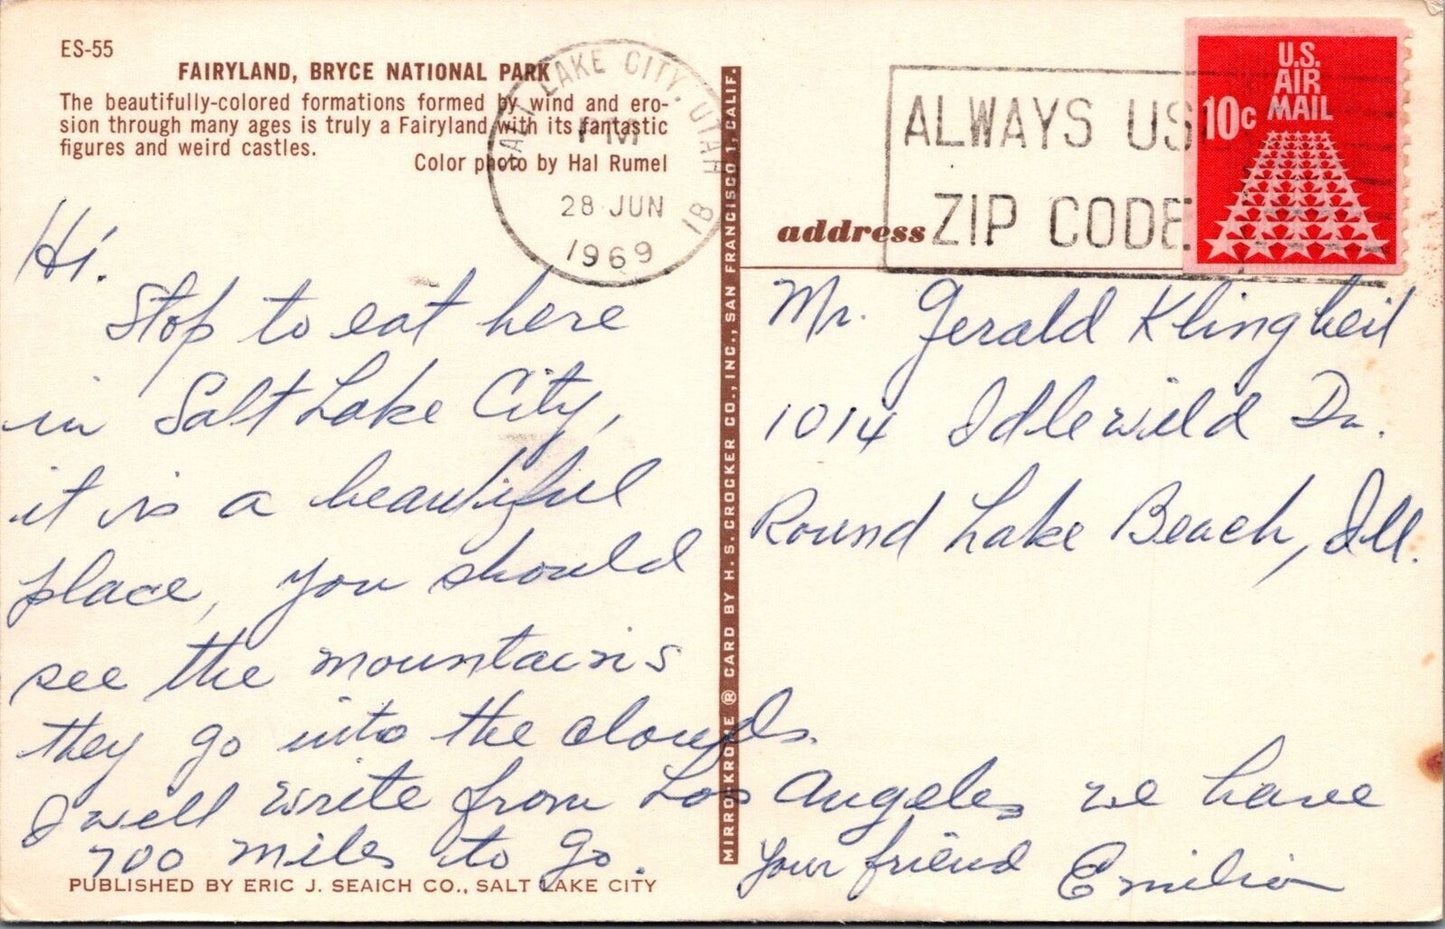 ES-55
FAIRYLAND, BRYCE NATIONAL PARK
The beautifully-colored formations formed by wind and ero-
sion through many ages is truly a Fairyland with its fantastic
figures and weird castles.
Color photo by Hal Rumel
SALT LAKE CITY, UTAH
PM
28 JUN
1969
18
ALWAYS US
ZIP CODE
U.S.
AIR
MAIL
10c
address
Hi.
Stop to eat here
in Salt Lake City,
it is a beautiful
place, you should
see the mountains
they go into the clouds.
I will write from Los Angeles we have
700 miles to go.
your friend Emilio
Mr. Gerald Klingbeil
1014 Idlewild Dr.
Round Lake Beach, Ill.
MIRROKROME ® CARD BY H. S. CROCKER CO., INC., SAN FRANCISCO 1, CALIF.
PUBLISHED BY ERIC J. SEAICH CO., SALT LAKE CITY